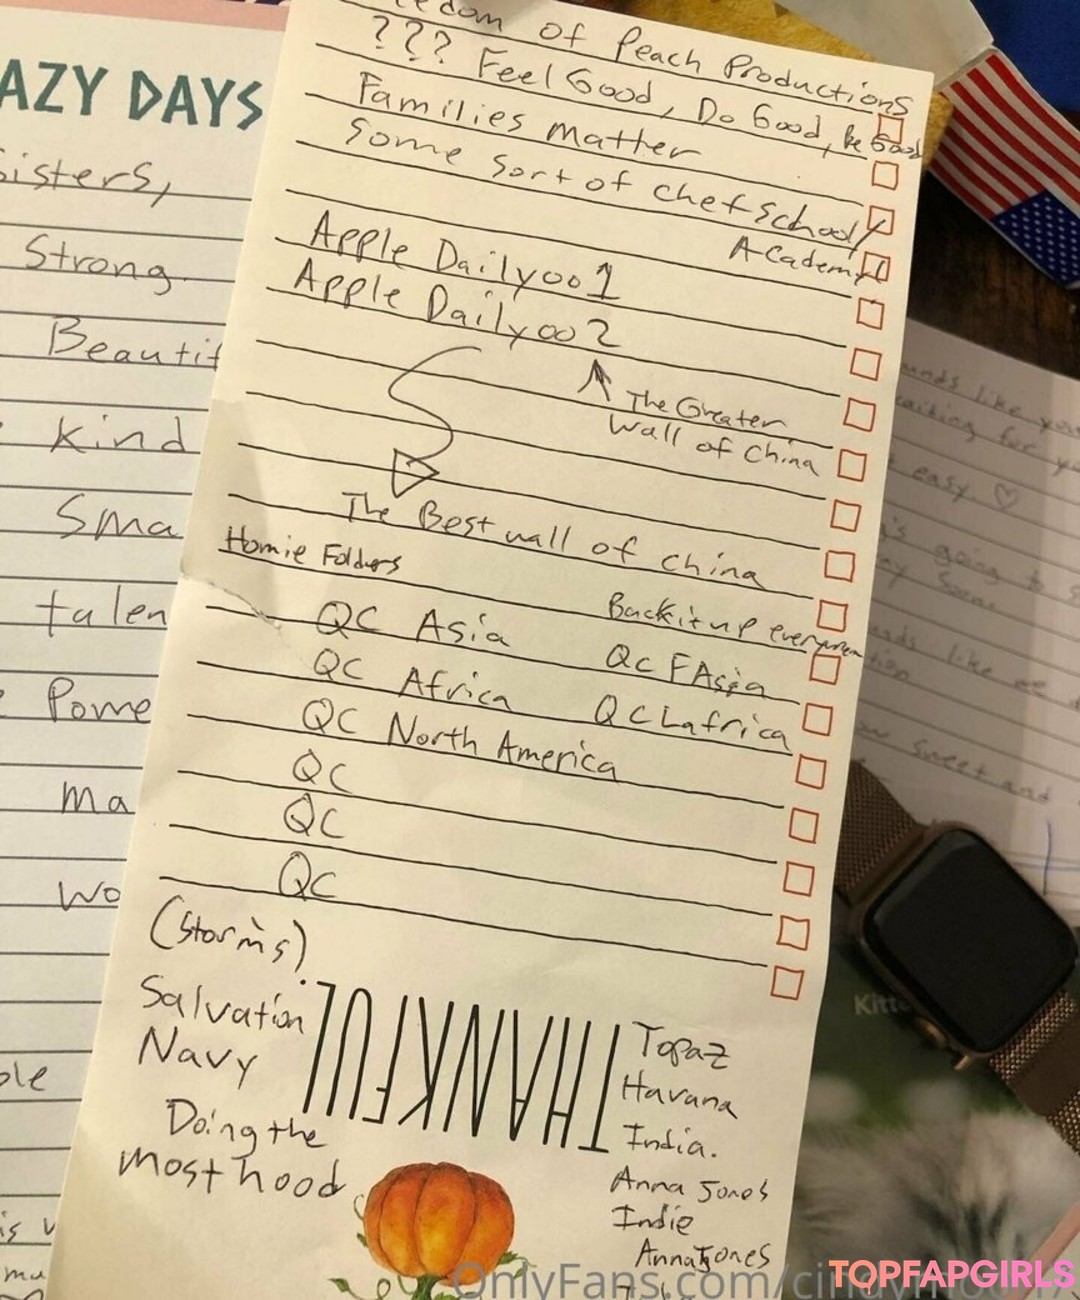 AZY DAYS
Sisters,
Strong
Beautif
Kind
Sma
talen
Powe
ma
Wo
ble
is
mu
edom of Peach Productions
??? Feel Good, Do Good, be Good
Families matter
Some sort of chef School/
Academy
Apple Daily001
Apple Daily002
The Greater
Wall of China
The Best wall of China
Homie Folders
Backitup evergreen
QC Asia QC FAsia
QC Africa QC Lafrica
QC North America
QC
QC
QC
(Storms)
Salvation
Navy
Doing the
most hood
THANKFUL
Topaz
Havana
India.
Anna Jones
Indie
Anna Jones
unds like you
waiting for yo
easy ♡
's going to
ay soon.
unds like me
tion
sweet and
Kitte
OnlyFans.com/cindy
TOPFAPGIRLS